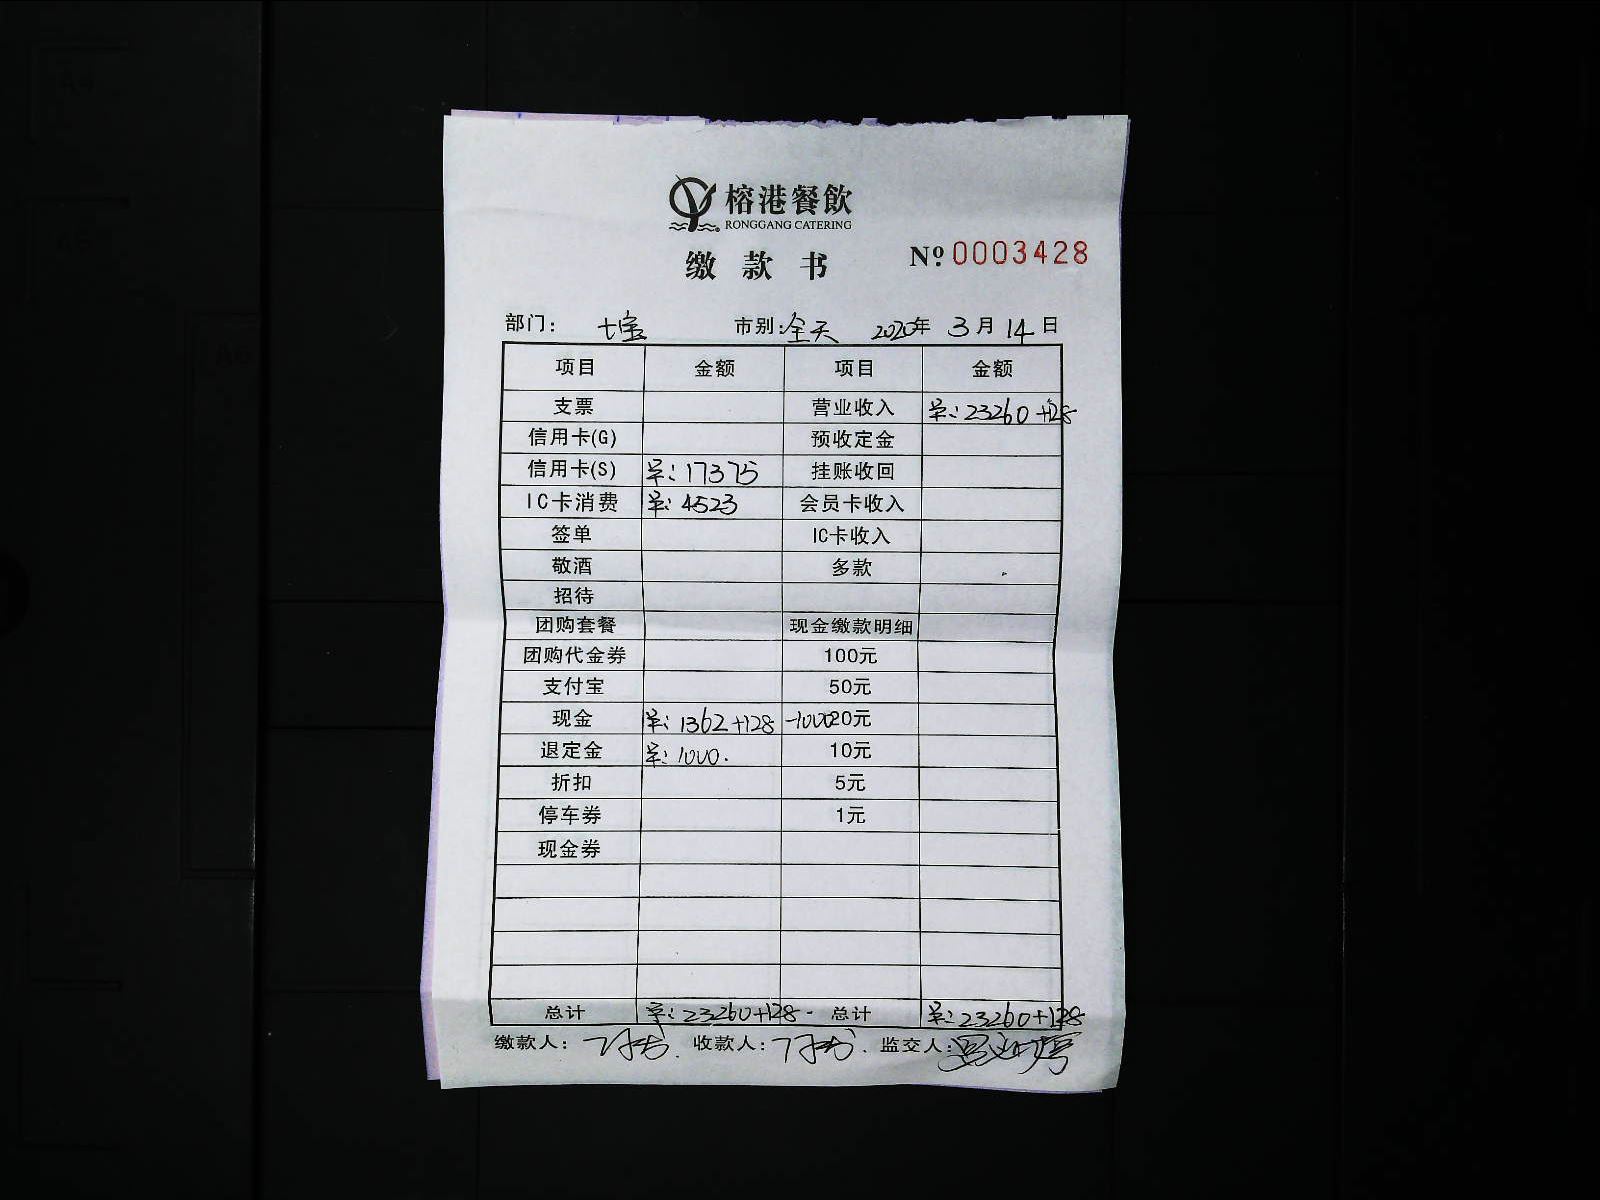 榕港餐飲
RONGGANG CATERING
缴款书 Nº 0003428
部门: 七宝 市别: 全天 2020年 3月 14日
项目 金额 项目 金额
支票 营业收入 单: 23260+128
信用卡(G) 预收定金
信用卡(S) 单: 17375 挂账收回
IC卡消费 单: 4523 会员卡收入
签单 IC卡收入
敬酒 多款
招待
团购套餐 现金缴款明细
团购代金券 100元
支付宝 50元
现金 单: 1362+128 -1000 20元
退定金 单: 1000. 10元
折扣 5元
停车券 1元
现金券
总计 单: 23260+128- 总计 单: 23260+128
缴款人: 收款人: 监交人: